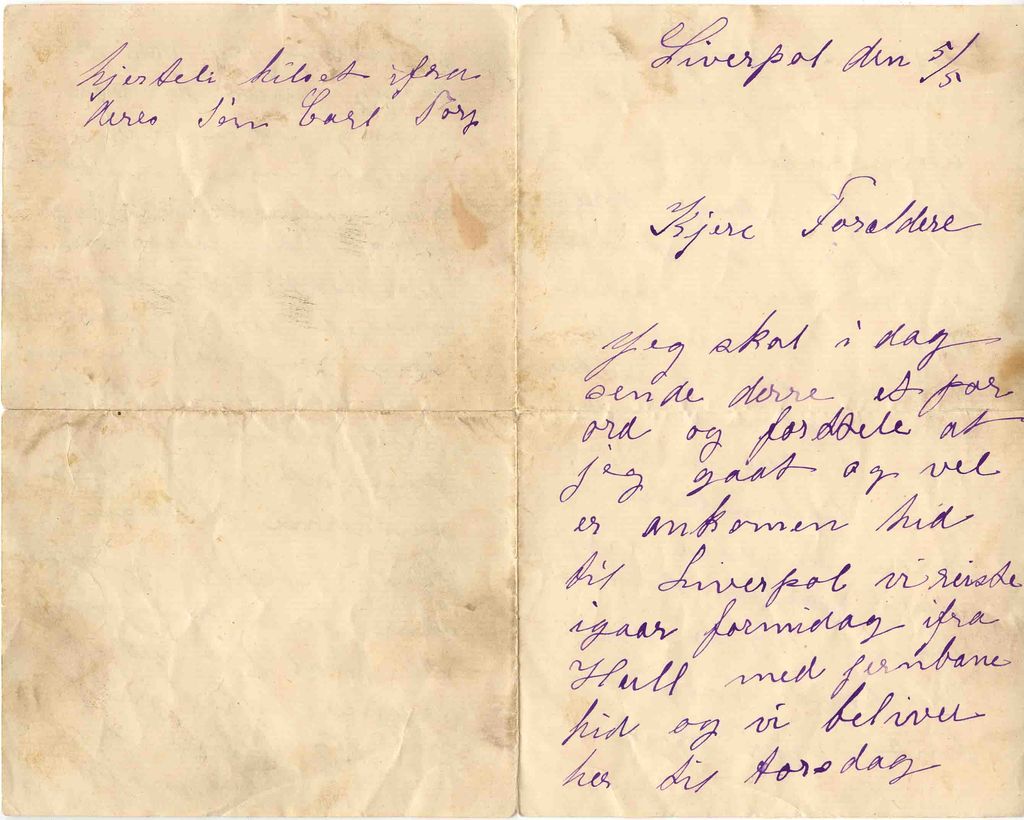 Liverpol den 5/5
Kjere Foreldere
Jeg skal i dag
sende derre et par
ord og fordtele at
jeg gaat og vel
er ankomen hid
til Liverpol vi reiste
igaar formidag ifra
Hull med jernbane
hid og vi beliver
her til torsdag
hjerteli hilset ifra
deres Søn Carl Torp